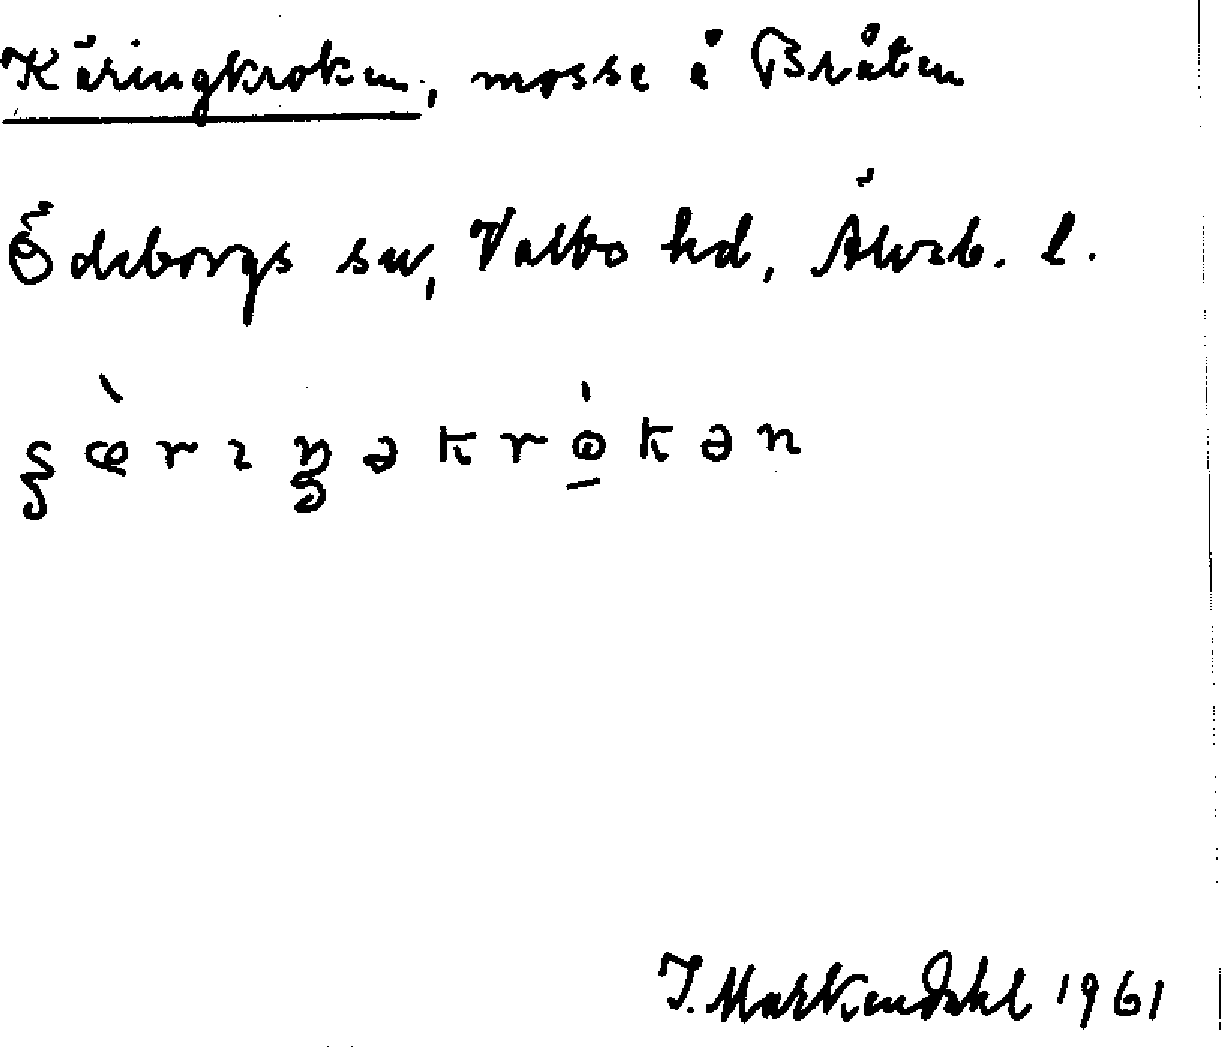 Käringkroken, mosse å Bråten
Ödeborgs sn, Valbo hd, Älvsb. l.
J. Markendahl 1961